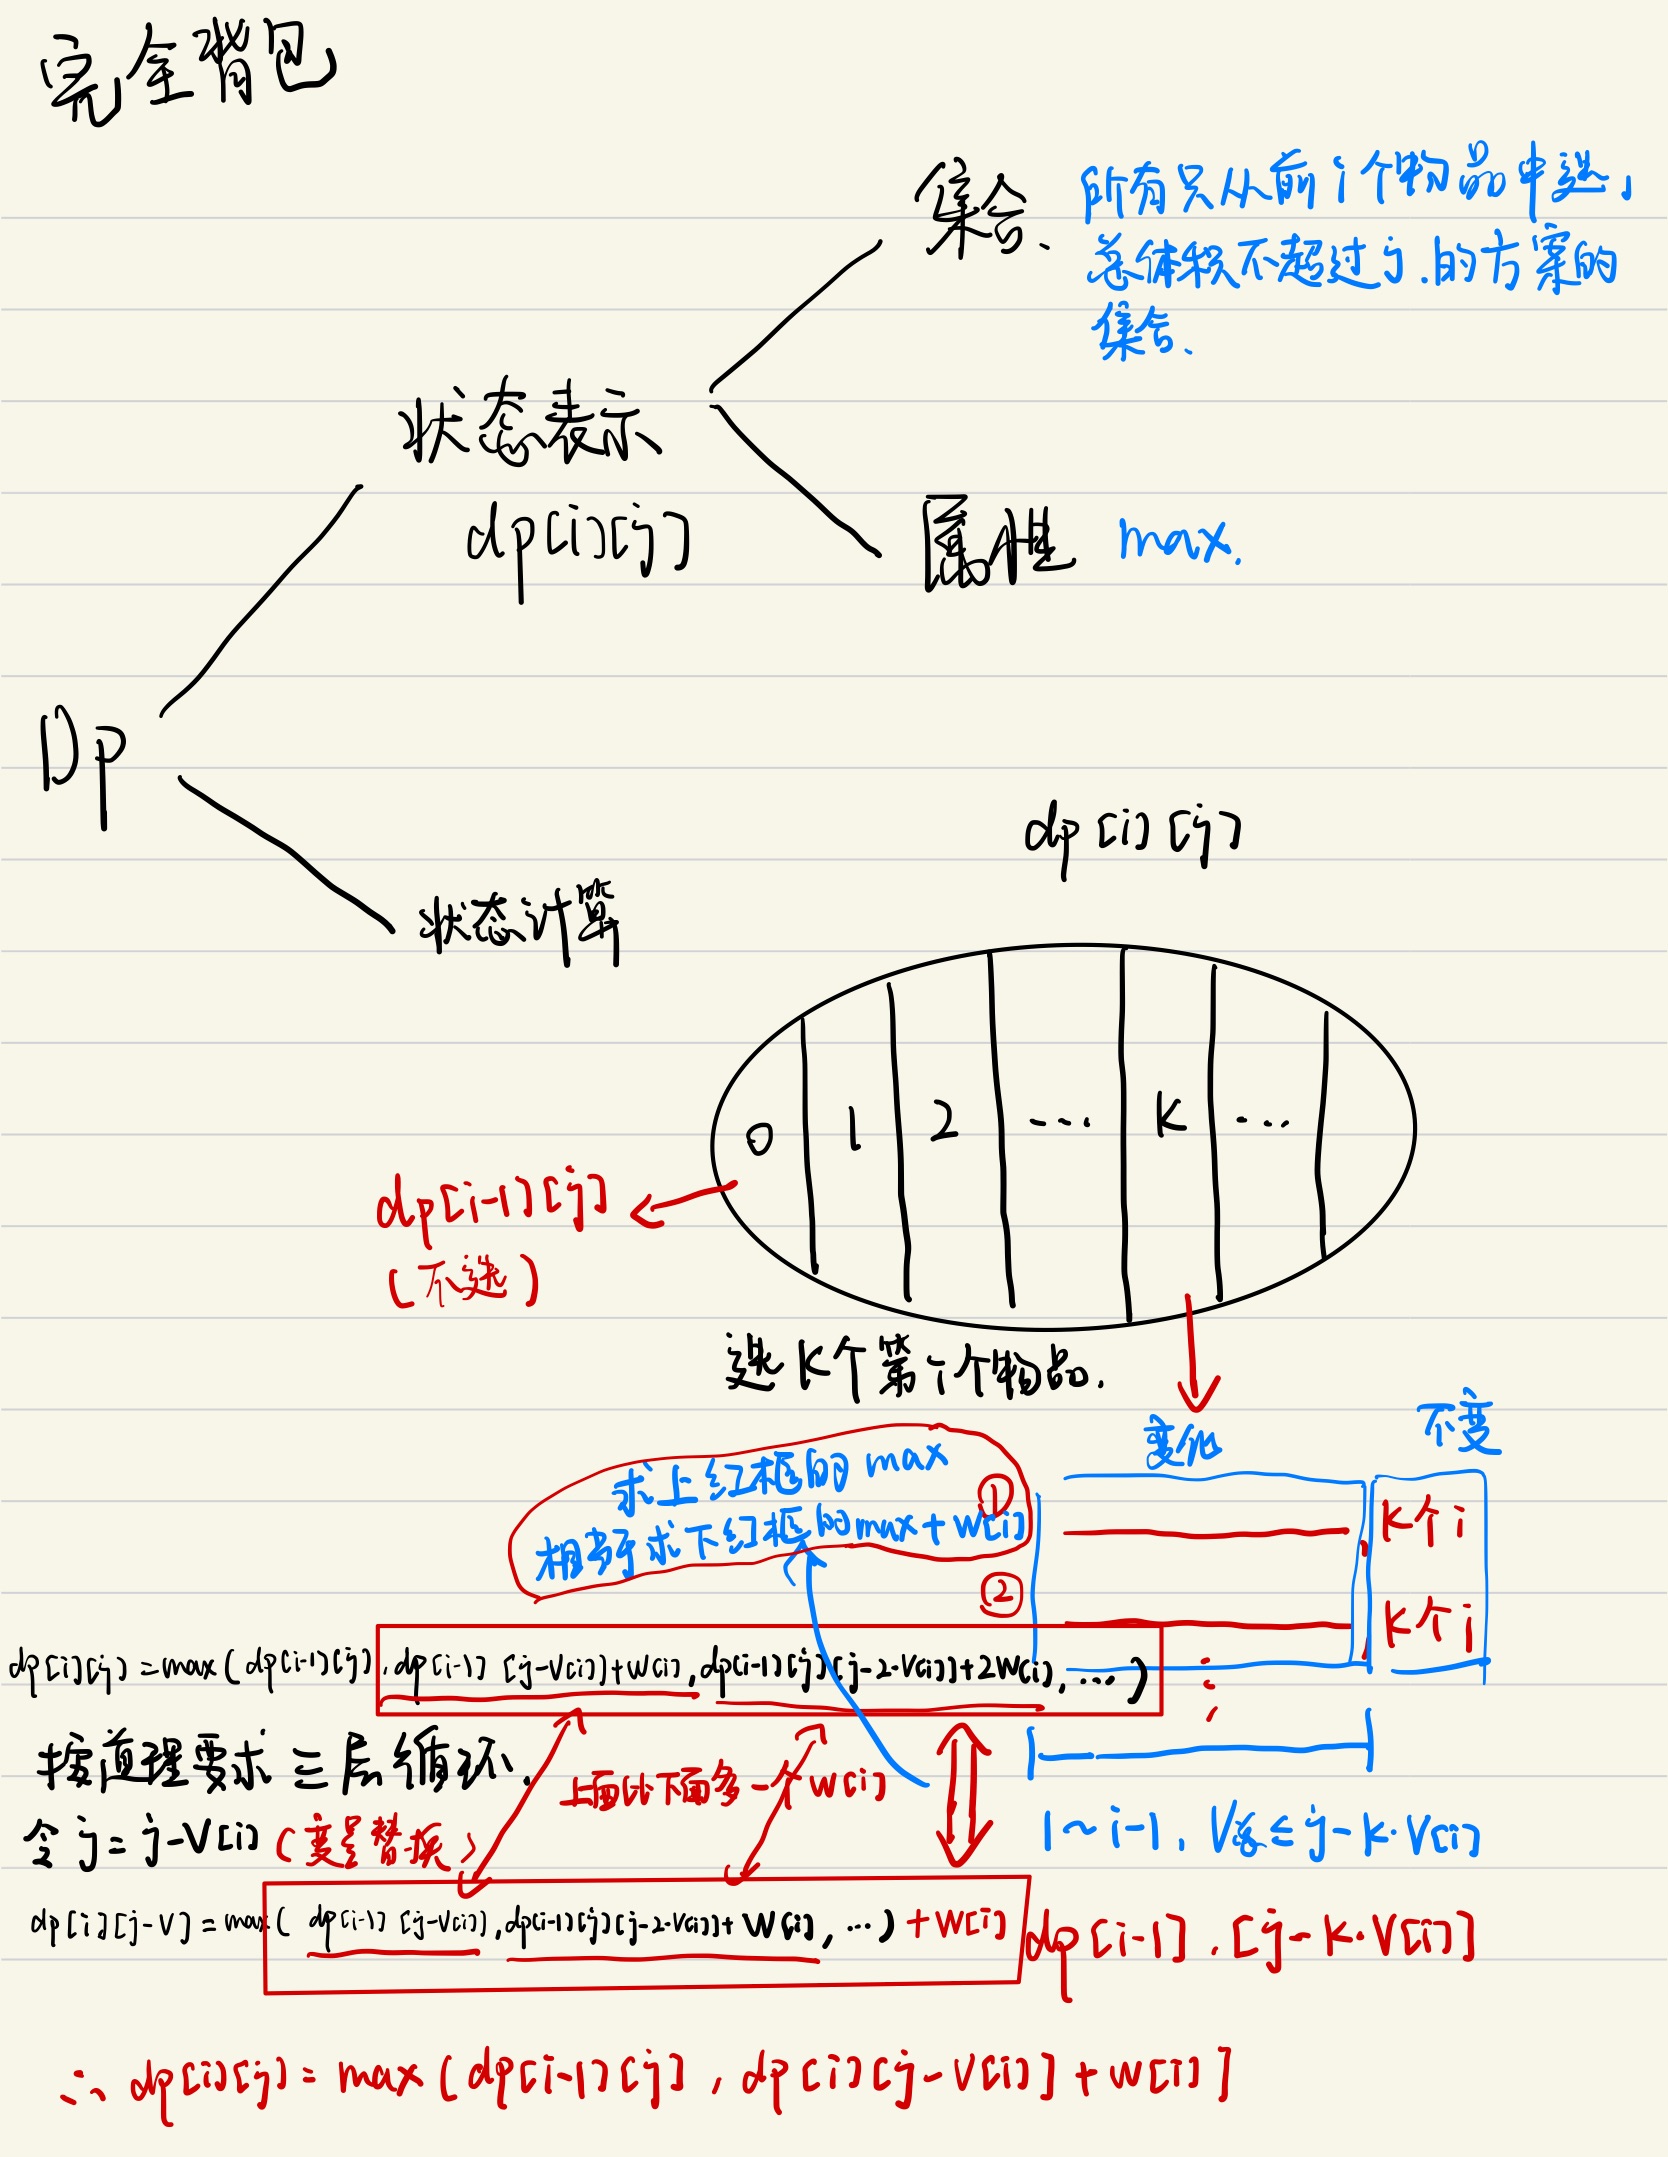 完全背包
集合、
所有只从前i个物品中选,
总体积不超过j.的方案的
集合、
状态表示
dp[i][j]
属性 max.
Dp
状态计算
dp[i][j]
0 1 2 ... K ...
dp[i-1][j]
(不选)
选K个第i个物品.
变化 不变
求上红框的max
相当于求下红框的max+w[i]
① K个i
② K个i
dp[i][j]=max(dp[i-1][j],dp[i-1][j-V[i]]+W[i],dp[i-1][j][j-2·V[i]]+2W[i],...)
按道理要求三层循环.
上面比下面多一个W[i]
令j=j-V[i](变量替换)
1~i-1, V总≤j-K·V[i]
dp[i][j-V]=max(dp[i-1][j-V[i]],dp[i-1][j][j-2·V[i]]+W[i],...)+W[i]
dp[i-1].[j-K·V[i]]
∴ dp[i][j]=max(dp[i-1][j],dp[i][j-V[i]]+W[i]]